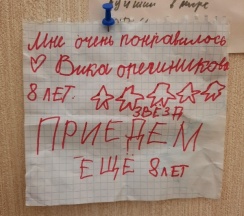 Мне очень понравилось
♡ Вика орешников
8 ЛЕТ. ☆☆☆☆☆
ЗВЕЗД
ПРИЕДЕМ
ЕЩЁ 8 лет